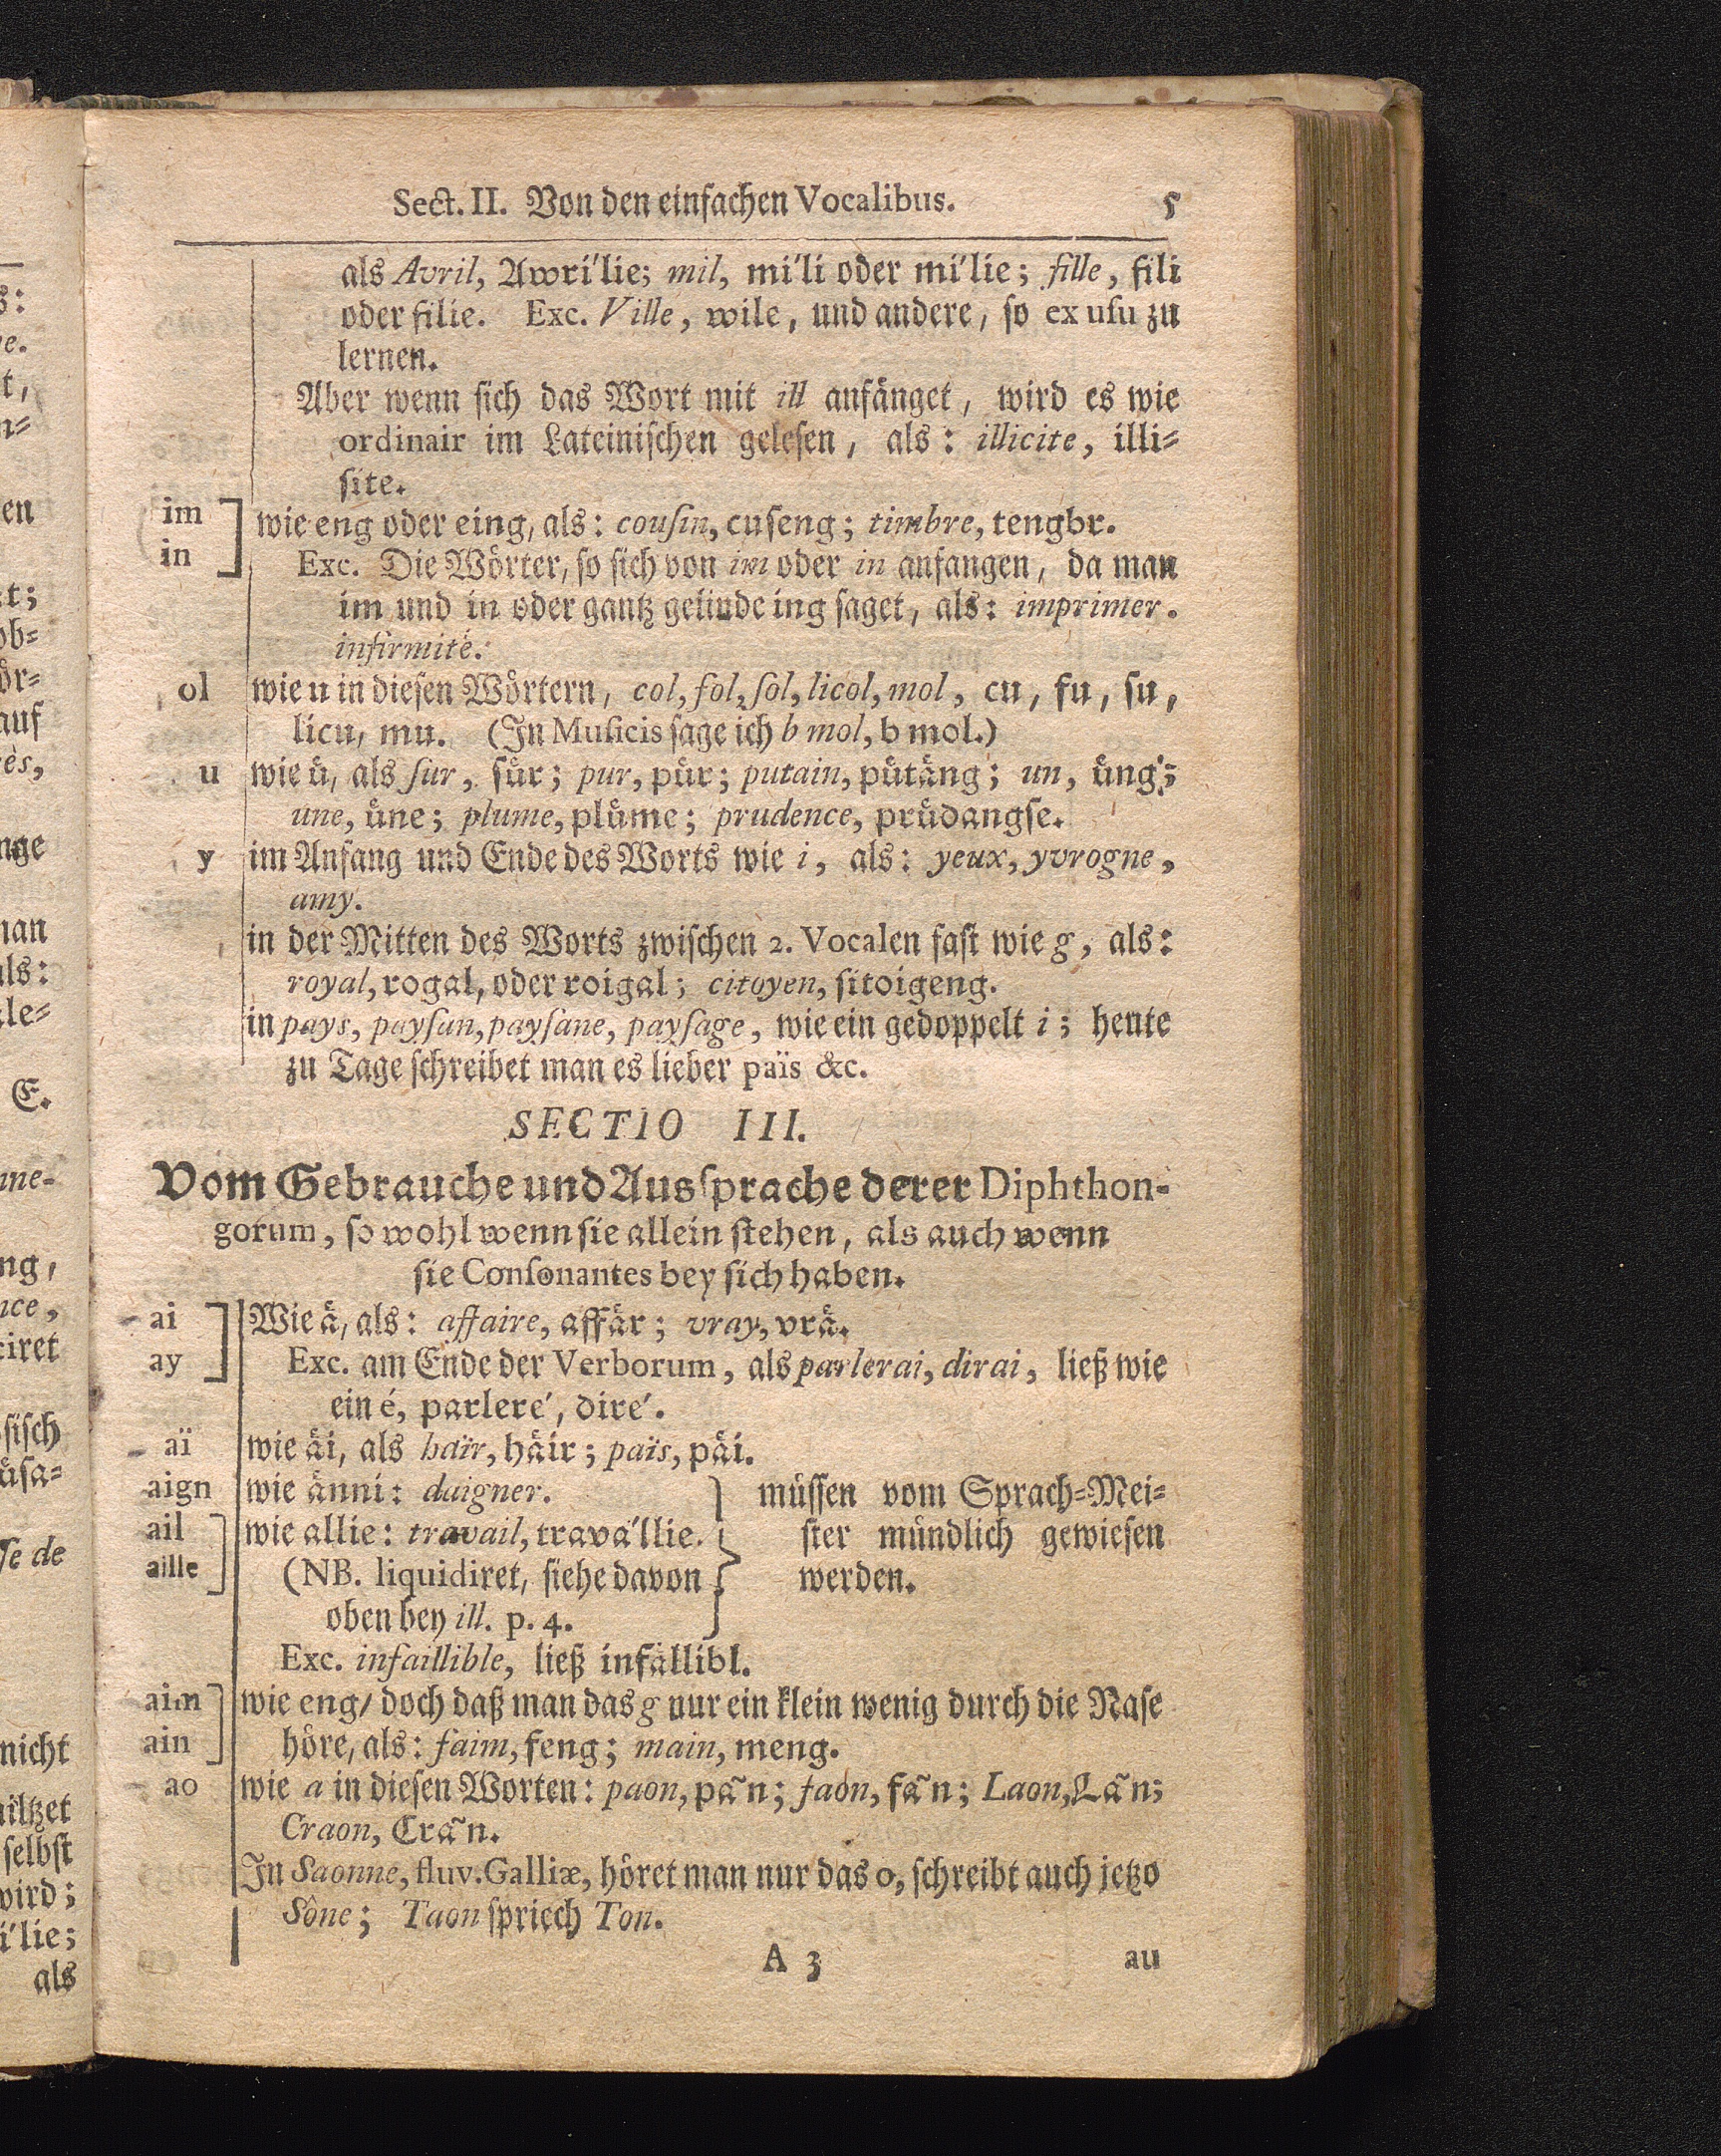 Sect. II. Von den einfachen Vocalibus. 5
als Avril, Awri'lie; mil, mi'li oder mi'lie; fille, fili
oder filie. Exc. Ville, wile, und andere, so ex usu zu
lernen.
Aber wenn sich das Wort mit ill anfänget, wird es wie
ordinair im Lateinischen gelesen, als: illicite, illi-
site.
im wie eng oder eing, als: cousin, cuseng; timbre, tengbr.
in Exc. Die Wörter, so sich von im oder in anfangen, da man
im und in oder gantz gelinde ing saget, als: imprimer.
infirmité.
ol wie u in diesen Wörtern, col, fol, sol, licol, mol, cu, fu, su,
licu, mu. (In Musicis sage ich b mol, b mol.)
u wie ü, als sur, sür; pur, pür; putain, pütäng; un, üng;
une, üne; plume, plüme; prudence, prüdangse.
y im Anfang und Ende des Worts wie i, als: yeux, yvrogne,
amy.
in der Mitten des Worts zwischen 2. Vocalen fast wie g, als:
royal, rogal, oder roigal; citoyen, sitoigeng.
in pays, paysan, paysane, paysage, wie ein gedoppelt i; heute
zu Tage schreibet man es lieber païs &c.
SECTIO III.
Vom Gebrauche und Aussprache derer Diphthon-
gorum, so wohl wenn sie allein stehen, als auch wenn
sie Consonantes bey sich haben.
ai Wie ä, als: affaire, affär; vray, vrä.
ay Exc. am Ende der Verborum, als parlerai, dirai, ließ wie
ein é, parlere', dire'.
aï wie äi, als haïr, häir; païs, päi.
aign wie änni: daigner. müssen vom Sprach-Mei-
ail wie allie: travail, trava'llie. ster mündlich gewiesen
aille (NB. liquidiret, siehe davon werden.
oben bey ill. p. 4.
Exc. infaillible, ließ infällibl.
aim wie eng/ doch daß man das g nur ein klein wenig durch die Nase
ain höre, als: faim, feng; main, meng.
ao wie a in diesen Worten: paon, pã n; faon, fã n; Laon, Lã n;
Craon, Crã n.
In Saonne, fluv. Galliæ, höret man nur das o, schreibt auch jetzo
Sône; Taon spriech Ton.
A 3 au